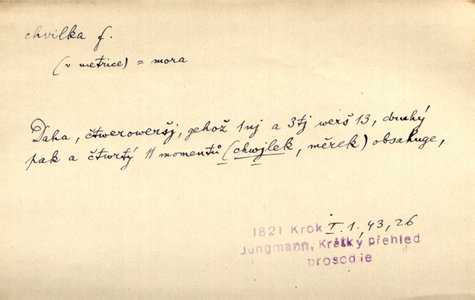 chvilka f.
(v metrice) = mora
Daha, čtweroweršj, gehož 1nj a 3tj werš 13, druhý
pak a čtwrtý 11 momentů (chwjlek, měrek) obsahuge,
1821 Krok I. 1, 43, 26
Jungmann, Krátký přehled
prosodie